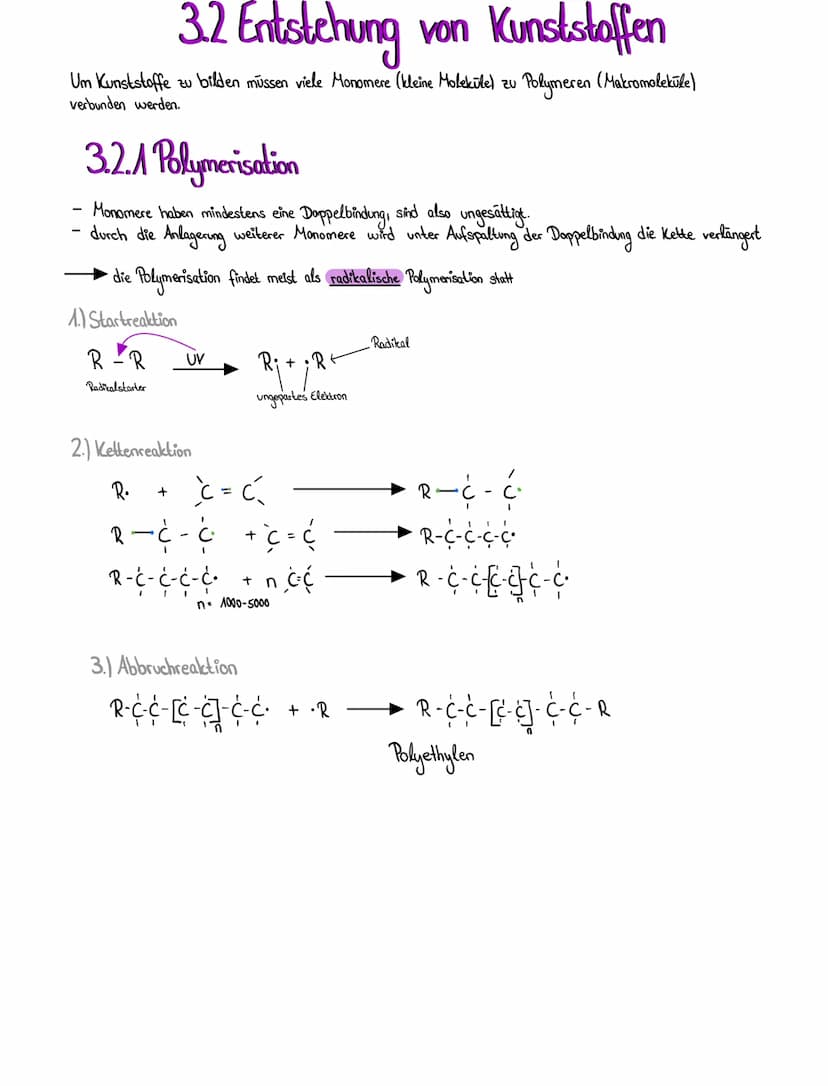 3.2 Entstehung von Kunststoffen
Um Kunststoffe zu bilden müssen viele Monomere (kleine Moleküle) zu Polymeren (Makromoleküle)
verbunden werden.
3.2.1 Polymerisation
- Monomere haben mindestens eine Doppelbindung, sind also ungesättigt.
- durch die Anlagerung weiterer Monomere wird unter Aufspaltung der Doppelbindung die Kette verlängert
→ die Polymerisation findet meist als radikalische Polymerisation statt
1.) Startreaktion
R - R UV → R· + ·R ← Radikal
Radikalstarter
ungepaartes Elektron
2.) Kettenreaktion
R· + C = C → R - C - C·
R - C - C· + C = C → R-C-C-C-C·
R-C-C-C-C· + n C=C → R-C-C-[C-C]n-C-C·
n = 1000-5000
3.) Abbruchreaktion
R-C-C-[C-C]n-C-C· + ·R → R-C-C-[C-C]n-C-C-R
Polyethylen